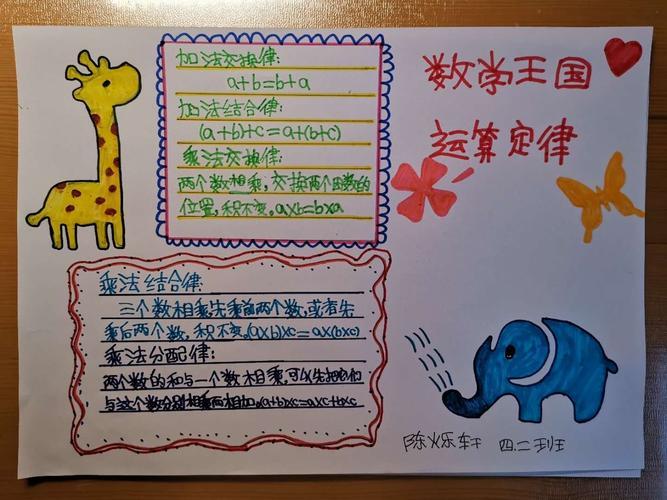 加法交换律:
a+b=b+a
加法结合律:
(a+b)+c=a+(b+c)
乘法交换律:
两个数相乘,交换两个因数的
位置,积不变。a×b=b×a
数学王国
运算定律
乘法结合律:
三个数相乘,先乘前两个数,或者先
乘后两个数,积不变。(a×b)×c=a×(b×c)
乘法分配律:
两个数的和与一个数相乘,可以先把它们
与这个数分别相乘再相加。(a+b)×c=a×c+b×c
陈烁轩 四.二班